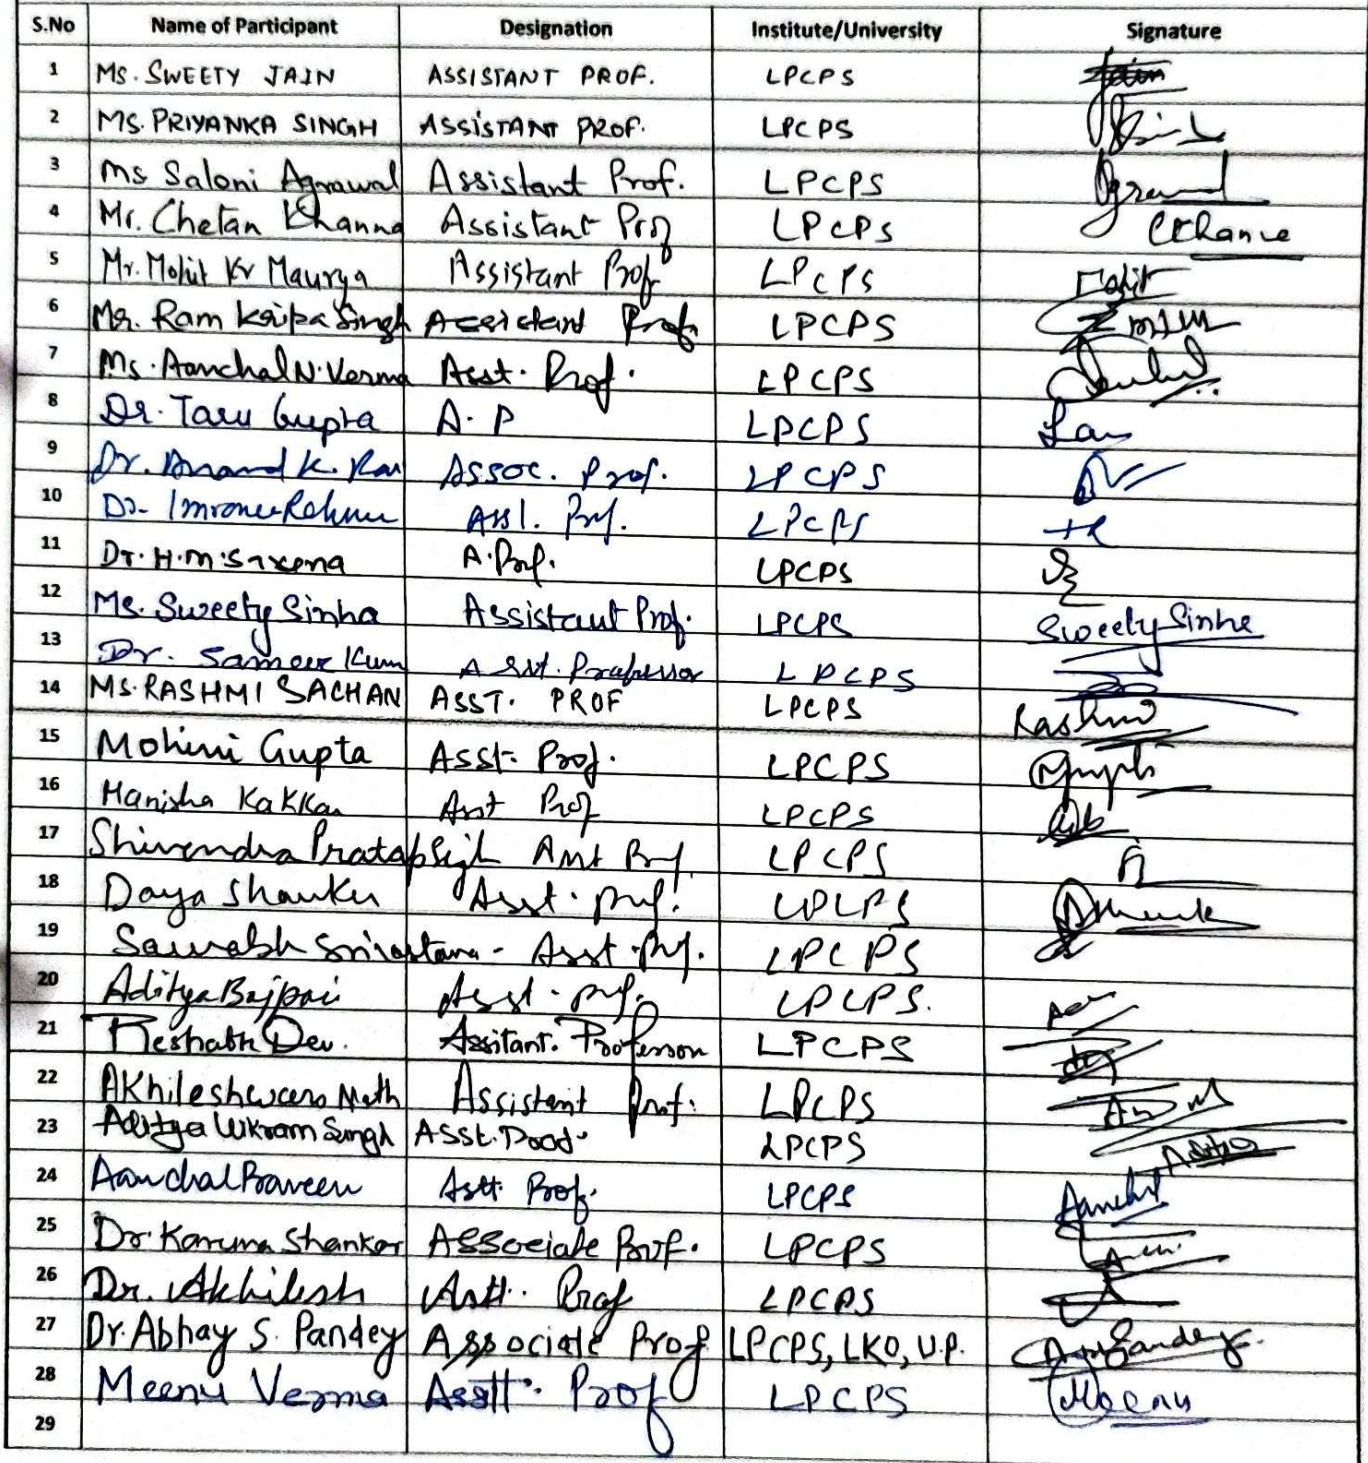 S.No Name of Participant Designation Institute/University Signature
1 Ms. SWEETY JAIN ASSISTANT PROF. LPCPS Jain
2 MS. PRIYANKA SINGH ASSISTANT PROF. LPCPS
3 Ms Saloni Agrawal Assistant Prof. LPCPS Agrawal
4 Mr. Chetan Khanna Assistant Prof LPCPS
5 Mr. Mohit Kr Maurya Assistant Prof LPCPS Mohit
6 Mr. Ram Kripa Singh Assistant Prof. LPCPS
7 Ms. Aanchal N. Verma Asst. Prof. LPCPS
8 Dr. Taru Gupta A. P LPCPS
9 Dr. Anand K. Rai Assoc. Prof. LPCPS
10 Dr. Asst. Prof. LPCPS
11 Dr. H.M. Saxena A. Prof. LPCPS
12 Ms. Sweety Sinha Assistant Prof. LPCPS Sweety Sinha
13 Dr. Sameer Kum Asst. Professor LPCPS
14 MS. RASHMI SACHAN ASST. PROF LPCPS Rashmi
15 Mohini Gupta Asst. Prof. LPCPS
16 Hanisha Kakkar Asst Prof LPCPS
17 Shivendra Pratap Singh Asst Prof LPCPS
18 Daya Shanker Asst. Prof. LPCPS
19 Saurabh Srivastava - Asst. Prof. LPCPS
20 Aditya Bajpai Asst. Prof. LPCPS.
21 Dev. Assitant. Professor LPCPS
22 Akhileshwar Nath Assistant Prof. LPCPS
23 Aditya Vikram Singh Asst. LPCPS Aditya
24 Aanchal Praveen Astt. Prof. LPCPS Aanchal
25 Dr. Karuna Shankar Associate Prof. LPCPS
26 Dr. Akhilesh Astt. Prof LPCPS
27 Dr. Abhay S. Pandey Associate Prof LPCPS, LKO, U.P.
28 Meenu Verma Asstt. Prof LPCPS Meenu
29